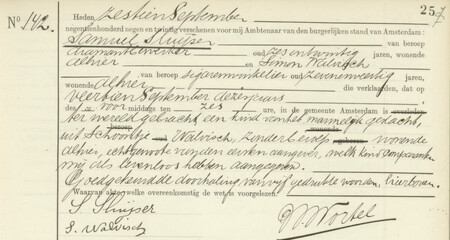 25
No 142.
Heden zestien September
negentienhonderd negen en twintig verschenen voor mij Ambtenaar van den burgerlijken stand van Amsterdam:
Samuel Sluijser van beroep
diamantbewerker oud zes en twintig jaren, wonende
alhier en Simon Walvisch
van beroep sigarenwinkelier oud zeven en veertig jaren,
wonende alhier die verklaarden, dat op
veertien September dezes jaars
des voor middags te zes ure, in de gemeente Amsterdam is overleden
ter wereld gebracht een kind van het mannelijk geslacht,
beroep wonende
uit Schoontje Walvisch, zonder beroep geboren wonende
alhier, echtgenoote van den eersten aangever, welk kind comparanten
mij als levenloos hebben aangegeven.
Goedgekeurde doorhaling van vijf gedrukte woorden, hierboven.
Waarvan akte welke overeenkomstig de wet is voorgelezen.
S. Sluijser
S. Walvisch
Wortel